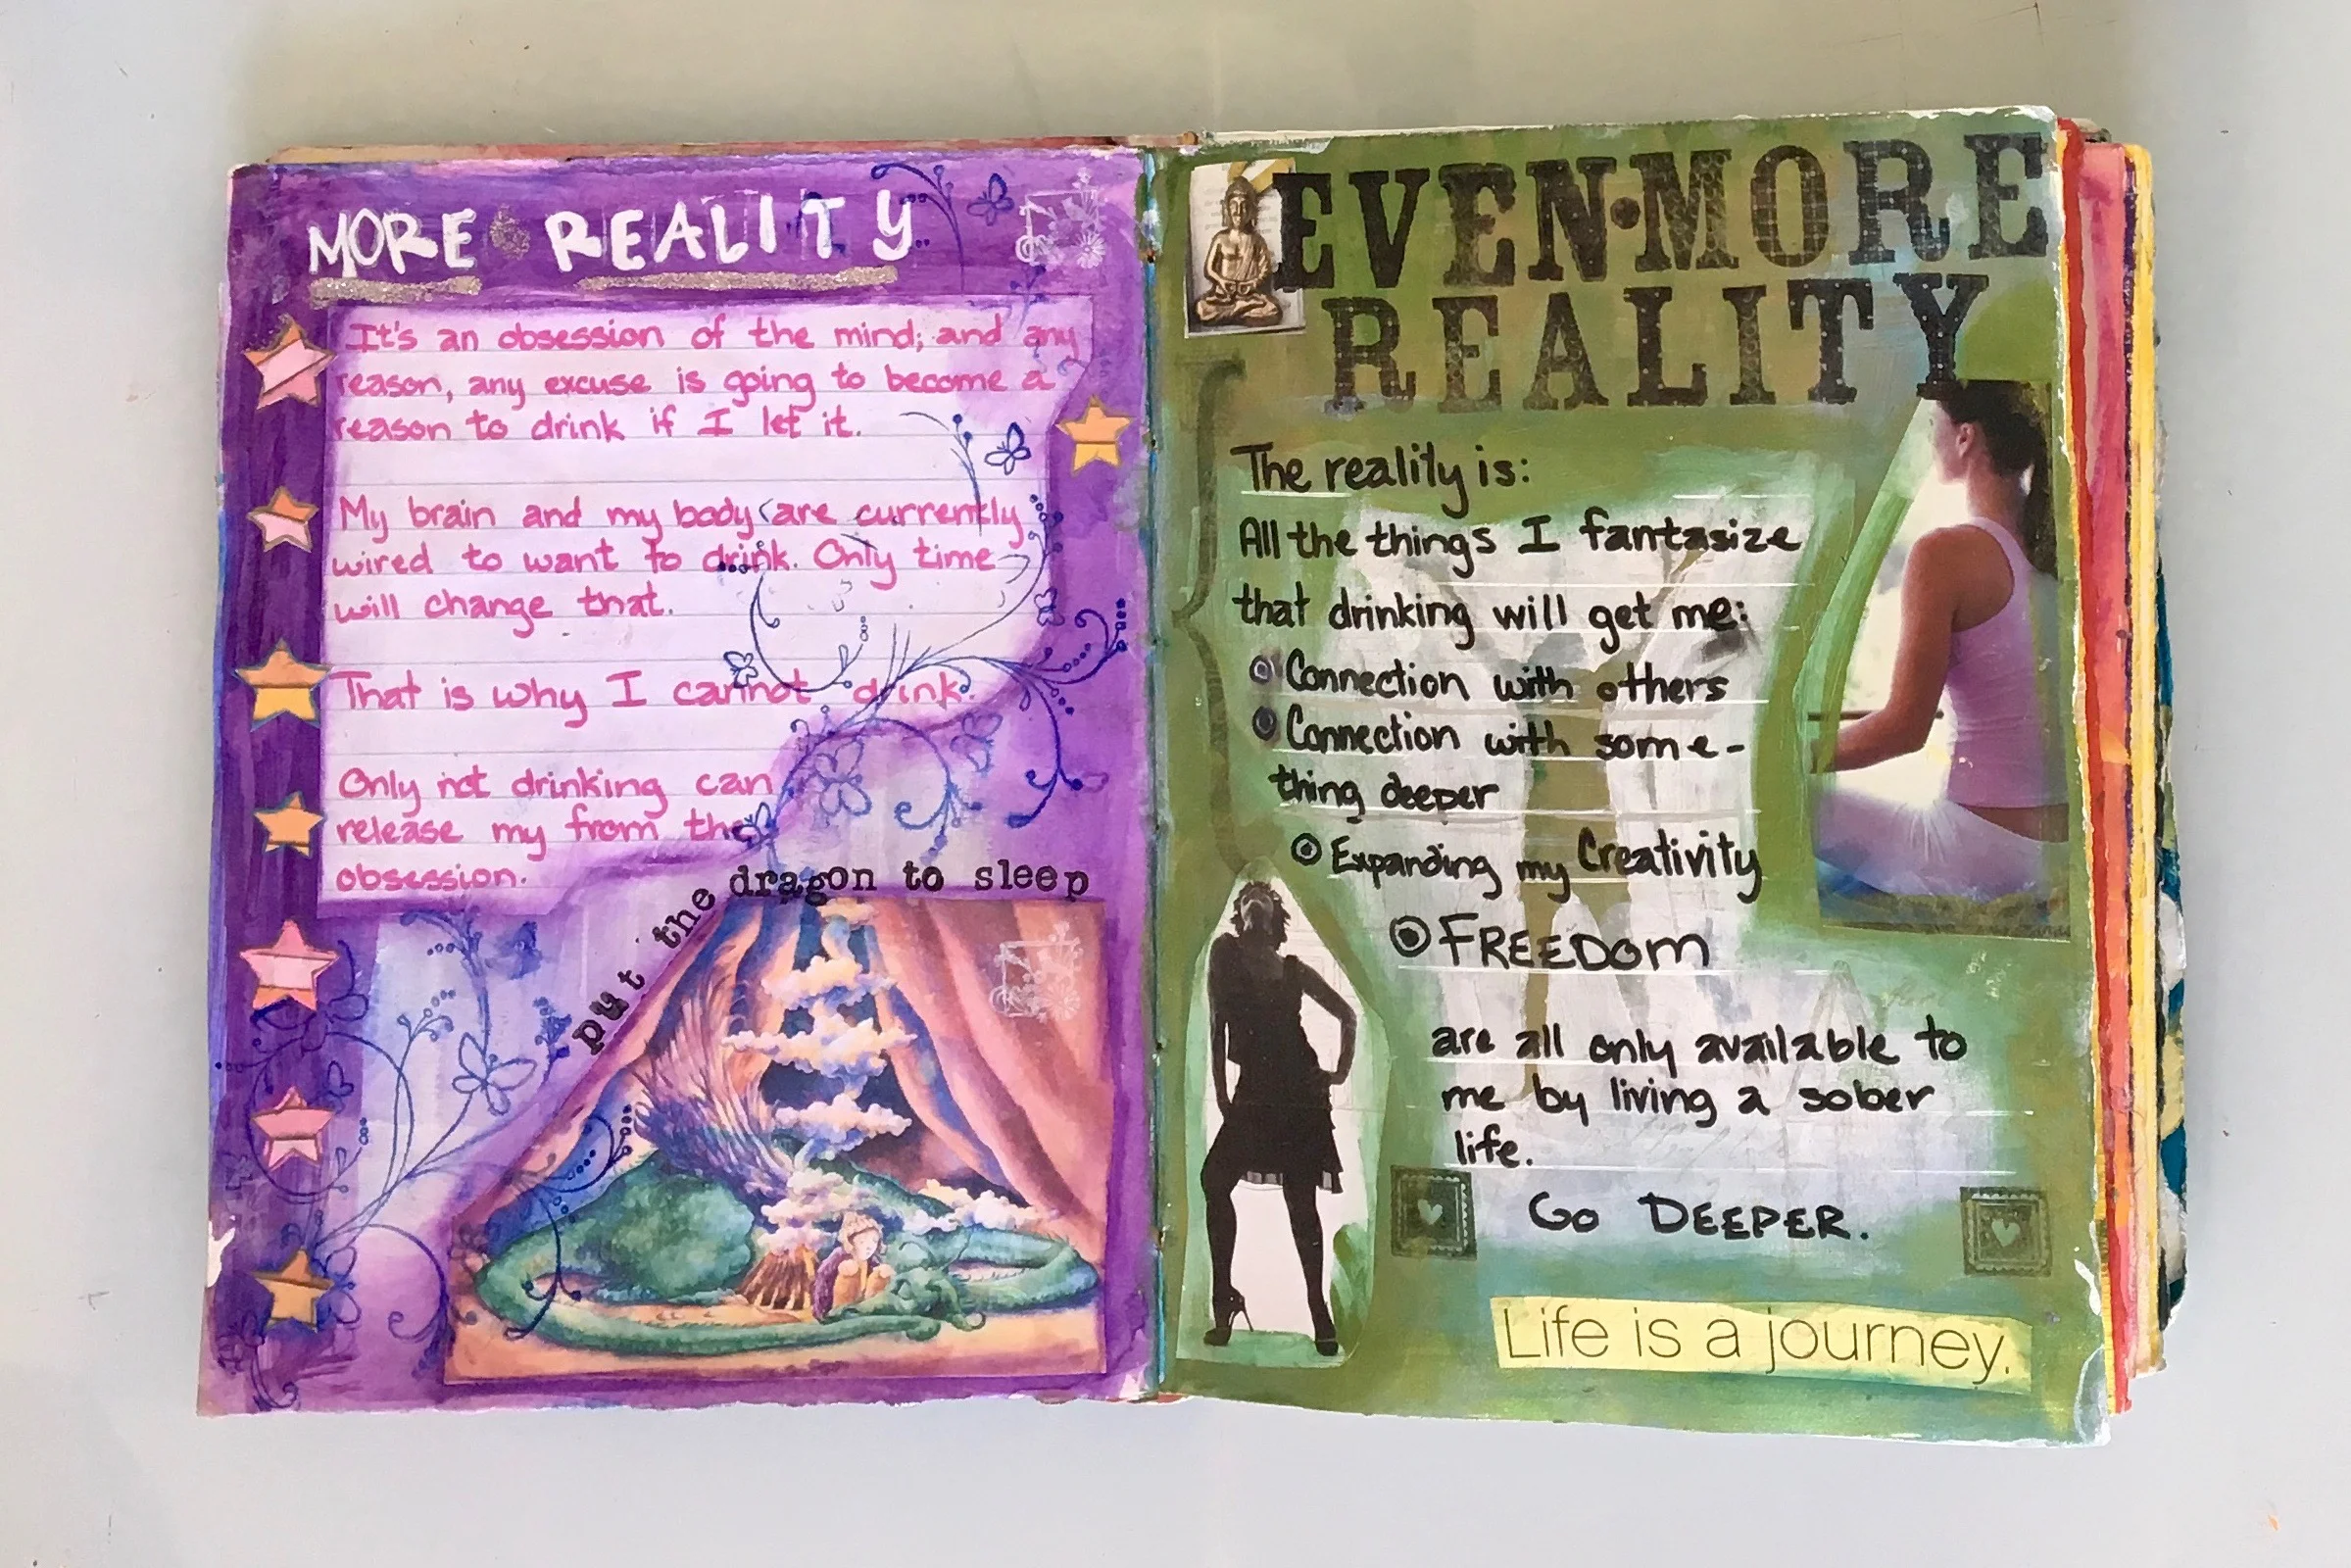 MORE REALITY
It's an obsession of the mind; and any
reason, any excuse is going to become a
reason to drink if I let it.
My brain and my body are currently
wired to want to drink. Only time
will change that.
That is why I cannot drink.
Only not drinking can
release my from the
obsession.
put the dragon to sleep
EVEN•MORE
REALITY
The reality is:
All the things I fantasize
that drinking will get me:
Connection with others
Connection with some-
thing deeper
Expanding my Creativity
FREEDOM
are all only available to
me by living a sober
life.
GO DEEPER.
Life is a journey.